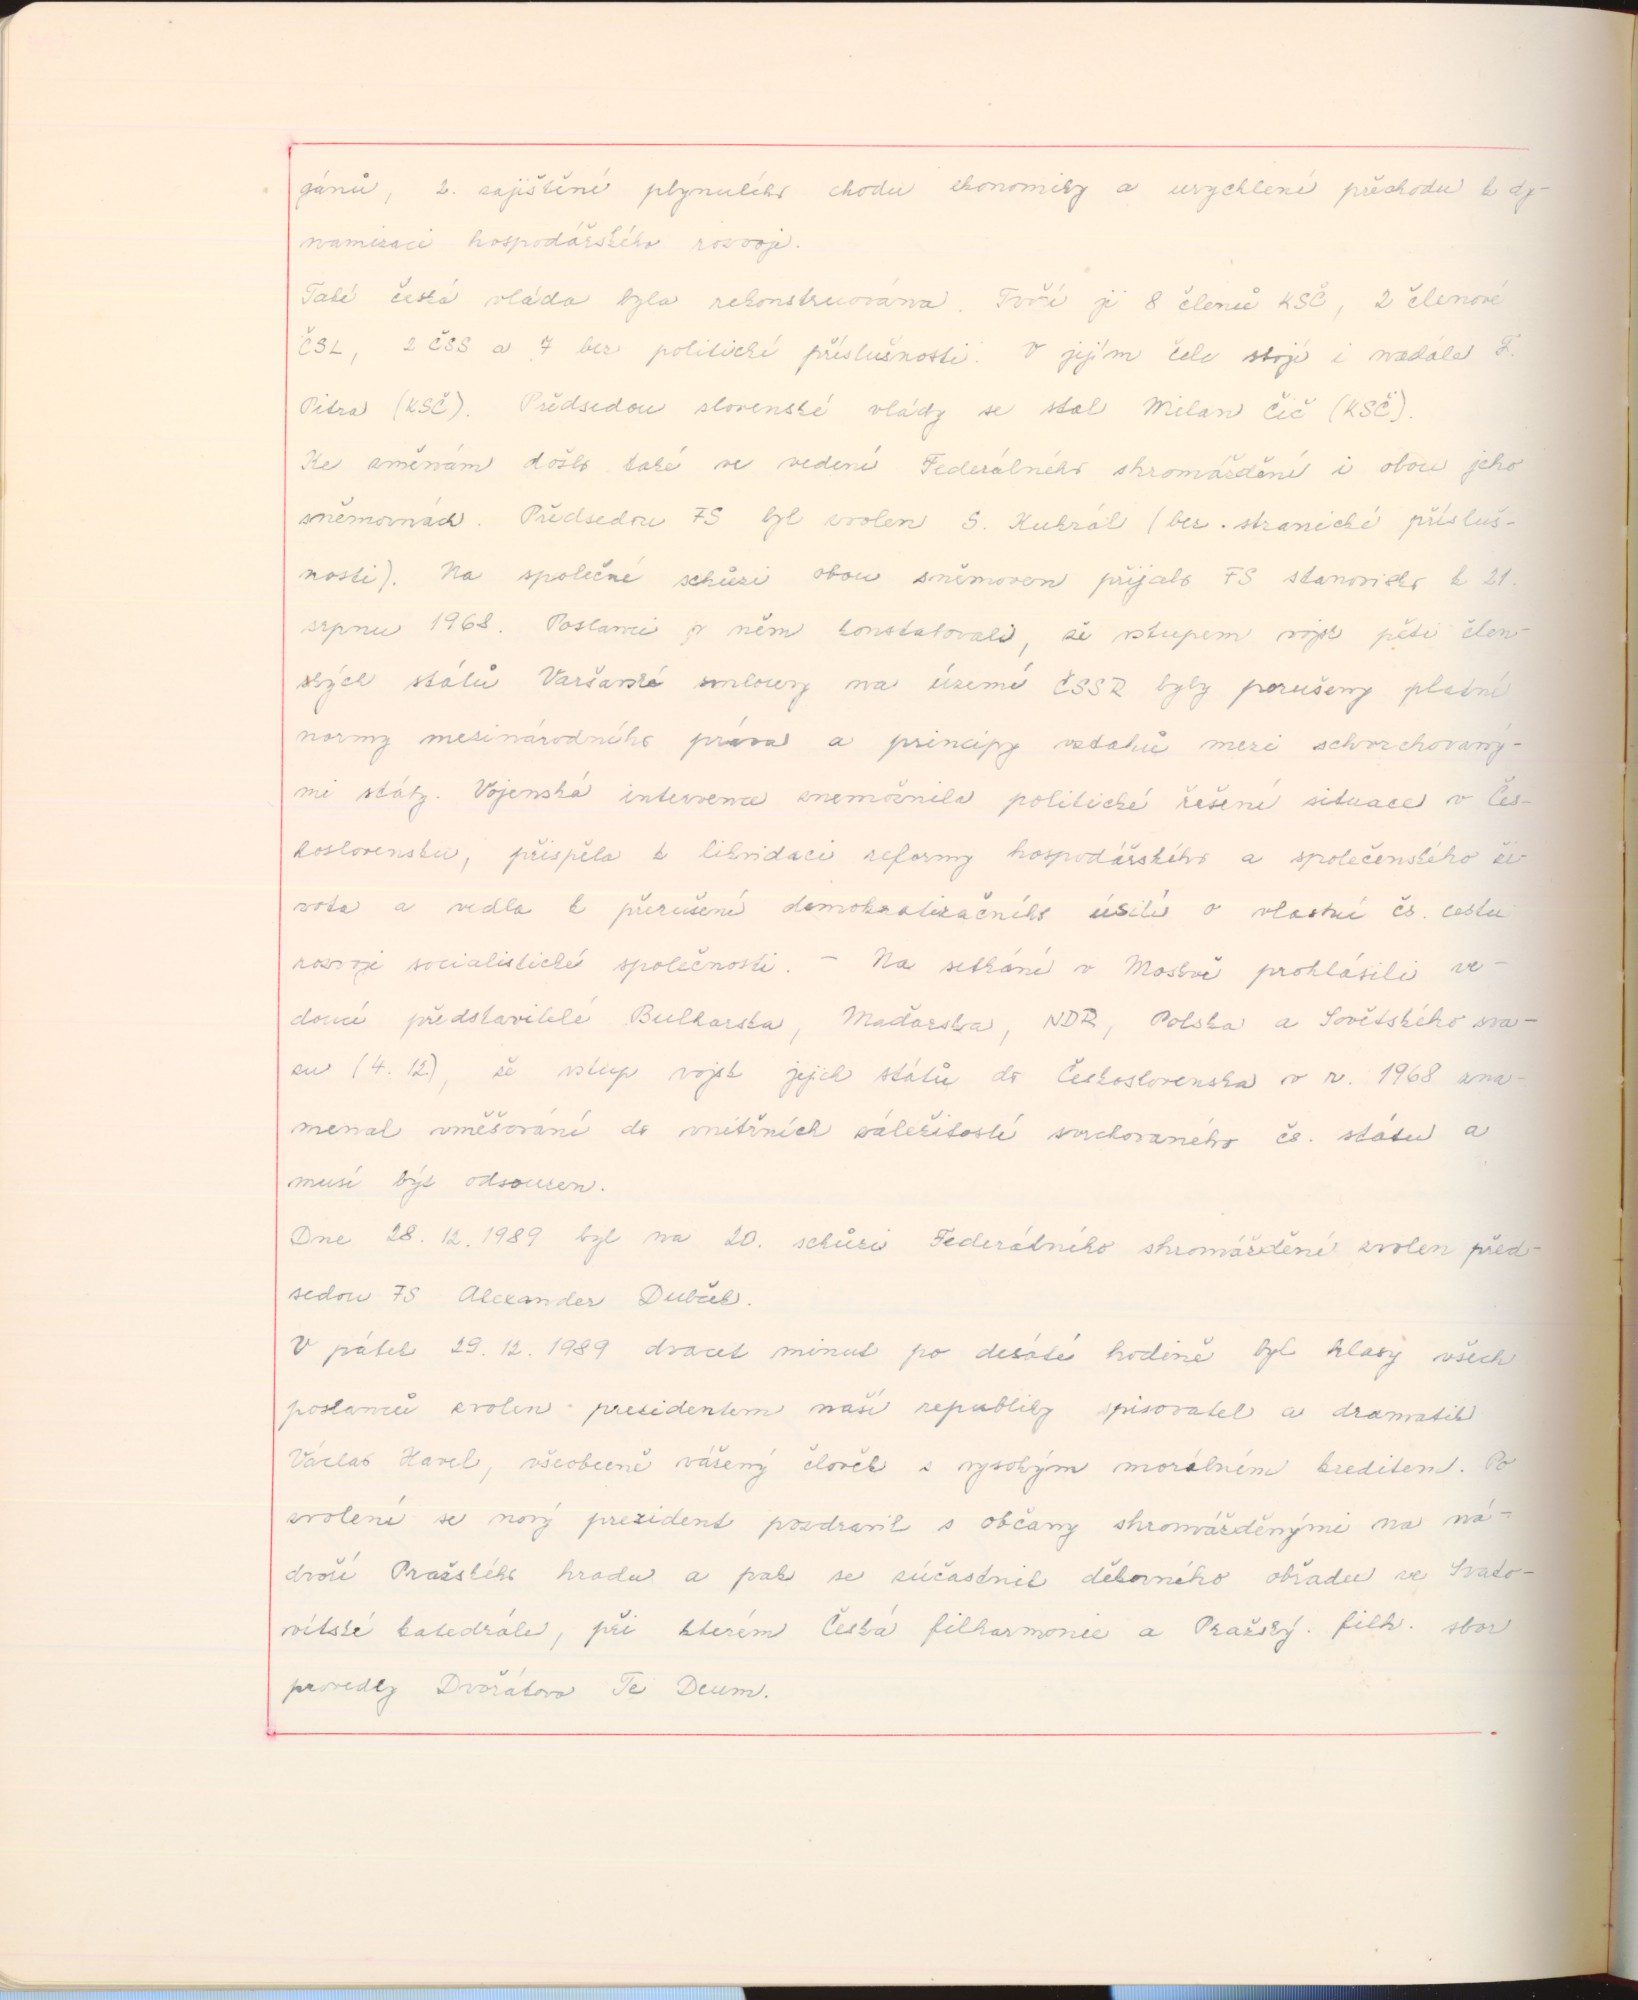 gánů, 2. zajištění plynulého chodu ekonomiky a urychlení přechodu k dy-
namizaci hospodářského rozvoje.
Také česká vláda byla rekonstruována. Tvoří ji 8 členů KSČ, 2 členové
ČSL, 2 ČSS a 7 bez politické příslušnosti. V jejím čele stojí i nadále F.
Pitra (KSČ). Předsedou slovenské vlády se stal Milan Čič (KSČ).
Ke změnám došlo také ve vedení Federálního shromáždění i obou jeho
sněmovnách. Předsedou FS byl zvolen S. Kukrál (bez stranické přísluš-
nosti). Na společné schůzi obou sněmoven přijalo FS stanovisko k 21.
srpnu 1968. Poslanci v něm konstatovali, že vstupem vojsk pěti člen-
ských států Varšavské smlouvy na území ČSSR byly porušeny platné
normy mezinárodního práva a principy vztahů mezi schvrchovaný-
mi státy. Vojenská intervence znemožnila politické řešení situace v Čes-
koslovensku, přispěla k likvidaci reformy hospodářského a společenského ži-
vota a vedla k přerušení demokratizačního úsilí o vlastní čs. cestu
rozvoje socialistické společnosti. - Na setkání v Moskvě prohlásili ve-
doucí představitelé Bulharska, Maďarska, NDR, Polska a Sovětského sva-
zu (4. 12.), že vstup vojsk jejich států do Československa v r. 1968 zna-
menal vměšování do vnitřních záležitostí svrchovaného čs. státu a
musí být odsouzen.
Dne 28. 12. 1989 byl na 20. schůzi Federálního shromáždění zvolen před-
sedou FS Alexander Dubček.
V pátek 29. 12. 1989 dvacet minut po desáté hodině byl hlasy všech
poslanců zvolen presidentem naší republiky spisovatel a dramatik
Václav Havel, všeobecně vážený člověk s vysokým morálním kreditem. Po
zvolení se nový prezident pozdravil s občany shromážděnými na ná-
dvoří Pražského hradu a pak se zúčastnil děkovného obřadu ve Svato-
vítské katedrále, při kterém Česká filharmonie a Pražský filh. sbor
provedly Dvořákovo Te Deum.